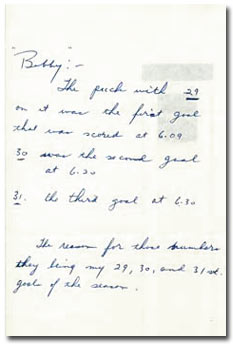 "Bobby":-
The puck with 29
on it was the first goal
that was scored at 6.09.
30 was the second goal
at 6.20
31. the third goal at 6.30
The reason for those numbers
they being my 29, 30, and 31st.
goals of the season.